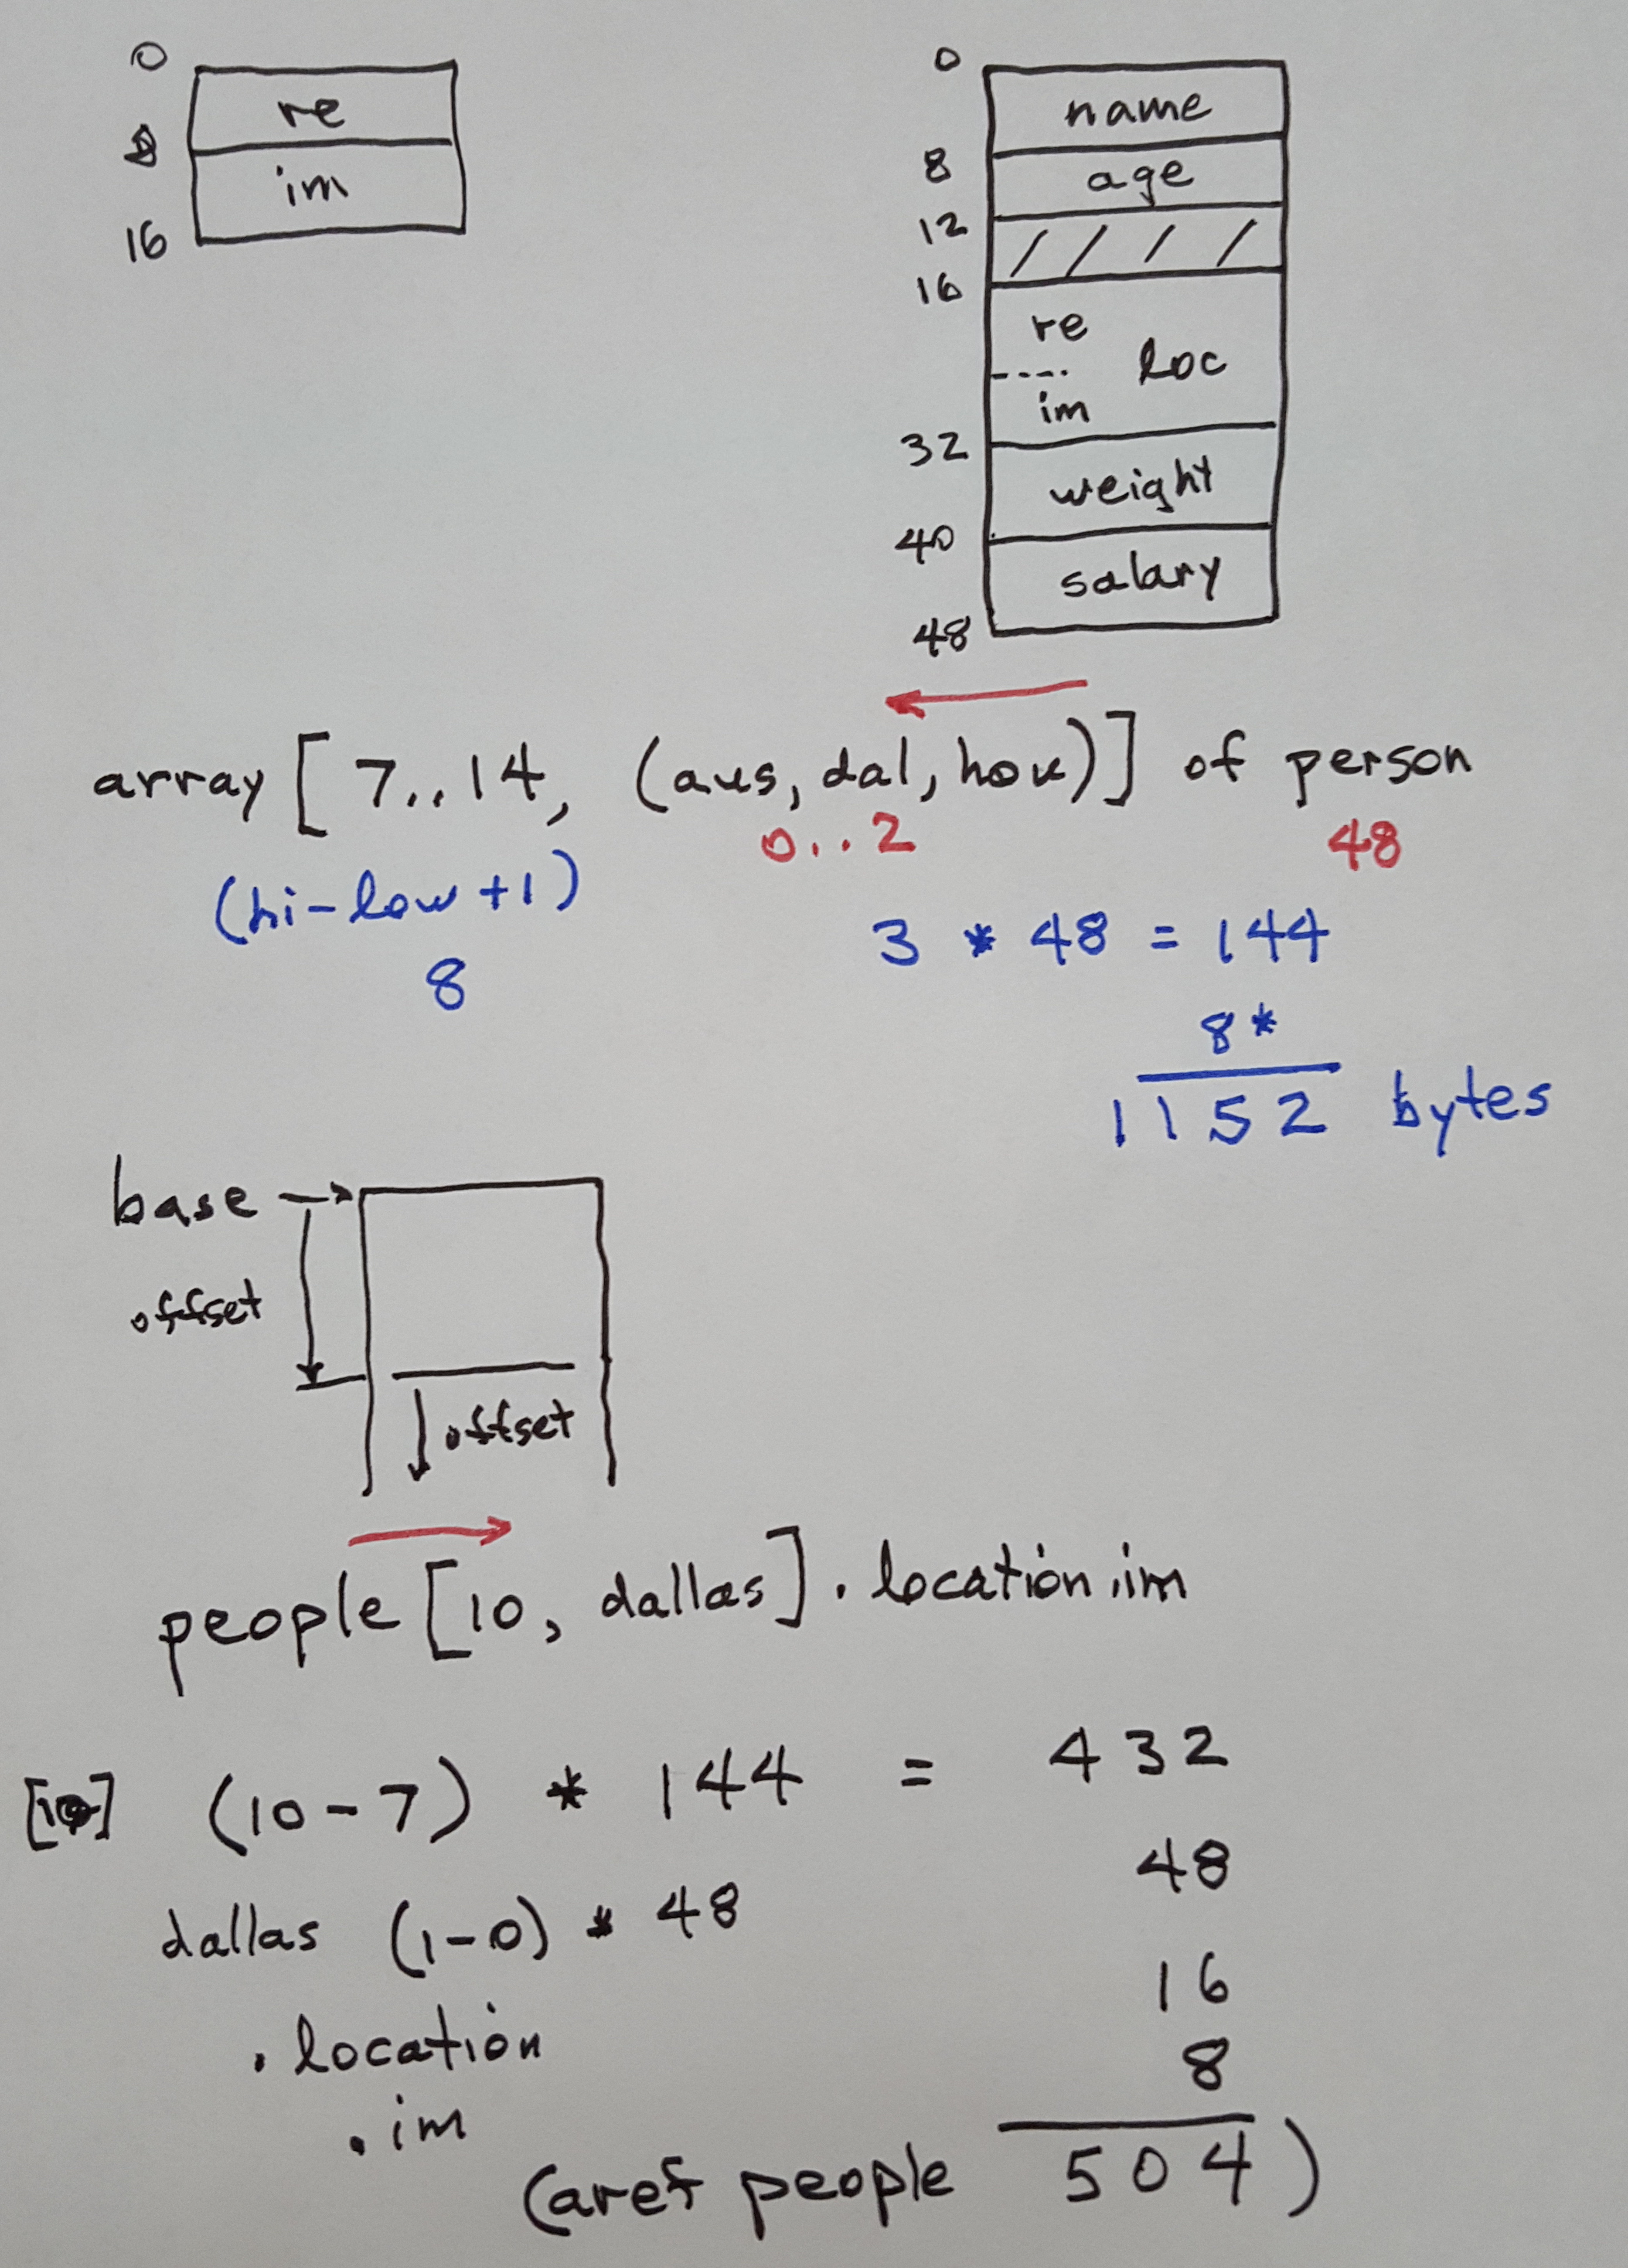 0
re
8
im
16
0
name
8
age
12
16
re
loc
im
32
weight
40
salary
48
array [ 7..14, (aus, dal, hou)] of person
0..2 48
(hi-low+1)
8
3 * 48 = 144
8 *
1152 bytes
base
offset
offset
people [10, dallas] . location.im
[10] (10-7) * 144 = 432
dallas (1-0) * 48 48
. location 16
. im 8
(aref people 504)